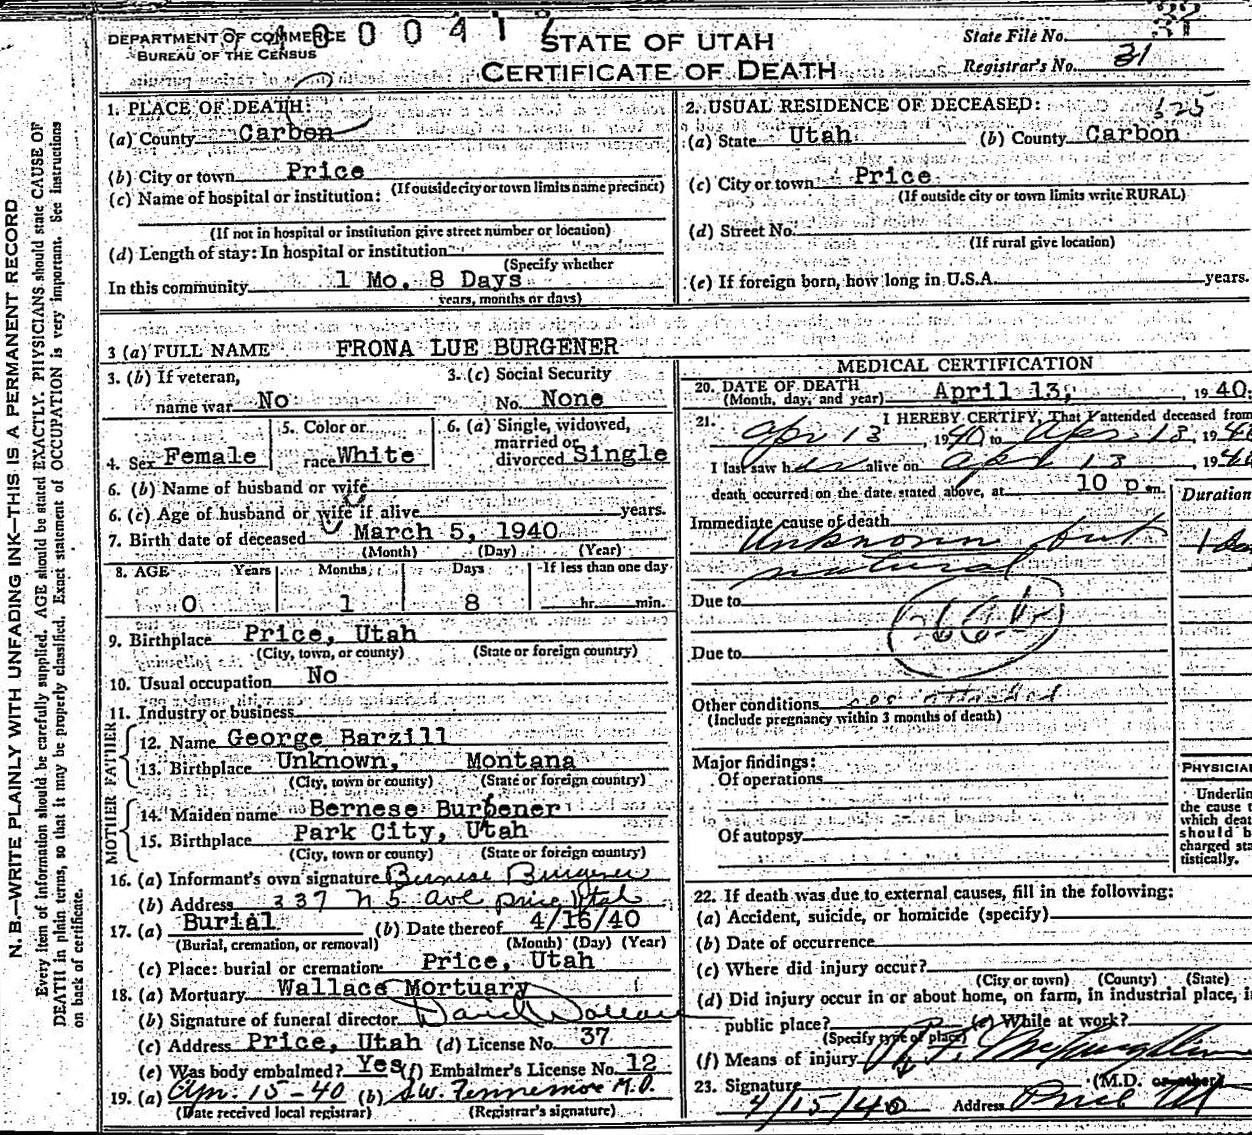 DEPARTMENT OF COMMERCE
BUREAU OF THE CENSUS
4000412
STATE OF UTAH
CERTIFICATE OF DEATH
State File No.
Registrar's No. 31
N. B.—WRITE PLAINLY WITH UNFADING INK—THIS IS A PERMANENT RECORD
Every item of information should be carefully supplied. AGE should be stated EXACTLY. PHYSICIANS should state CAUSE OF
DEATH in plain terms, so that it may be properly classified. Exact statement of OCCUPATION is very important. See instructions
on back of certificate.
1. PLACE OF DEATH:
(a) County Carbon
(b) City or town Price
(If outside city or town limits name precinct)
(c) Name of hospital or institution:
(If not in hospital or institution give street number or location)
(d) Length of stay: In hospital or institution
(Specify whether
In this community 1 Mo. 8 Days
years, months or days)
2. USUAL RESIDENCE OF DECEASED:
(a) State Utah (b) County Carbon
(c) City or town Price
(If outside city or town limits write RURAL)
(d) Street No.
(If rural give location)
(e) If foreign born, how long in U.S.A. years.
3 (a) FULL NAME FRONA LUE BURGENER
3. (b) If veteran,
name war No
3. (c) Social Security
No. None
4. Sex Female
5. Color or
race White
6. (a) Single, widowed,
married or
divorced Single
6. (b) Name of husband or wife
6. (c) Age of husband or wife if alive years.
7. Birth date of deceased March 5, 1940
(Month) (Day) (Year)
8. AGE Years Months Days If less than one day
0 1 8 hr. min.
9. Birthplace Price, Utah
(City, town, or county) (State or foreign country)
10. Usual occupation No
11. Industry or business
FATHER
12. Name George Barzill
13. Birthplace Unknown, Montana
(City, town or county) (State or foreign country)
MOTHER
14. Maiden name Bernese Burgener
15. Birthplace Park City, Utah
(City, town or county) (State or foreign country)
16. (a) Informant's own signature Bernese Burgener
(b) Address 337 N 5 Ave Price Utah
17. (a) Burial (b) Date thereof 4/16/40
(Burial, cremation, or removal) (Month) (Day) (Year)
(c) Place: burial or cremation Price, Utah
18. (a) Mortuary Wallace Mortuary
(b) Signature of funeral director
(c) Address Price, Utah (d) License No. 37
(e) Was body embalmed? Yes (f) Embalmer's License No. 12
19. (a) Apr. 15-40 (b) S.W. Fennemore M.D.
(Date received local registrar) (Registrar's signature)
MEDICAL CERTIFICATION
20. DATE OF DEATH
(Month, day, and year) April 13, 1940.
21. I HEREBY CERTIFY, That I attended deceased from
Apr 13, 1940 to Apr 13, 1940
I last saw her alive on Apr 13, 1940
death occurred on the date stated above, at 10 p m.
Duration
Immediate cause of death
Unknown but
natural
Due to
Due to
Other conditions see attached
(Include pregnancy within 3 months of death)
Major findings:
Of operations
Of autopsy
PHYSICIAN
Underline
the cause t
which deat
should b
charged sta
tistically.
22. If death was due to external causes, fill in the following:
(a) Accident, suicide, or homicide (specify)
(b) Date of occurrence
(c) Where did injury occur?
(City or town) (County) (State)
(d) Did injury occur in or about home, on farm, in industrial place, in
public place? (e) While at work?
(Specify type of place)
(f) Means of injury
23. Signature (M.D. or other)
4/15/40 Address Price Ut